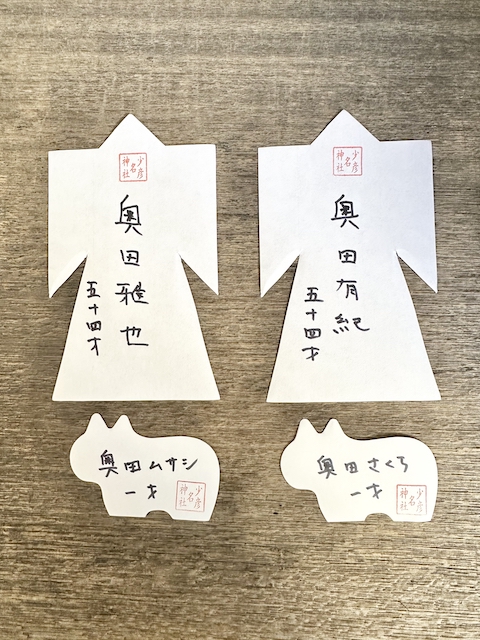 少彦
名
神社
奥田雅也
五十四才
少彦
名
神社
奥田有紀
五十四才
奥田ムサシ
一才
少彦
名
神社
奥田さくら
一才
少彦
名
神社